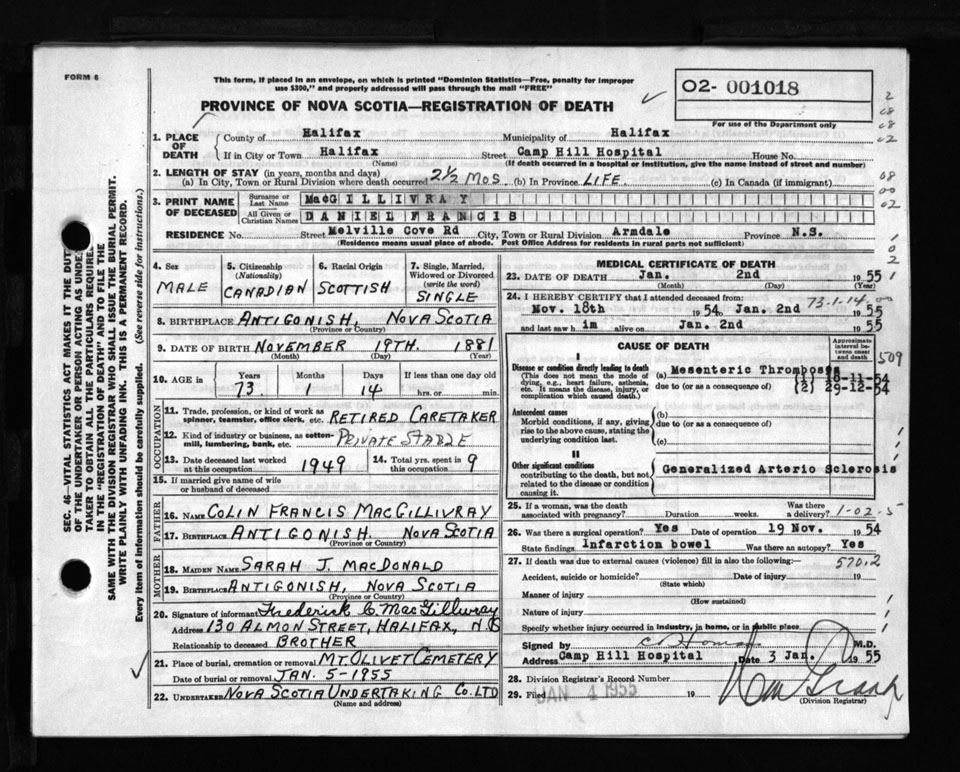 FORM 6
This form, if placed in an envelope, on which is printed "Dominion Statistics—Free, penalty for improper
use $300," and properly addressed will pass through the mail "FREE"
PROVINCE OF NOVA SCOTIA—REGISTRATION OF DEATH
02- 001018
For use of the Department only
1. PLACE OF DEATH
County of Halifax Municipality of Halifax
If in City or Town Halifax Street Camp Hill Hospital House No.
(Name) (If death occurred in a hospital or institution, give the name instead of street and number)
2. LENGTH OF STAY (in years, months and days)
(a) In City, Town or Rural Division where death occurred 2½ MOS. (b) In Province LIFE (c) In Canada (if immigrant)
3. PRINT NAME OF DECEASED
Surname or Last Name MacGILLIVRAY
All Given or Christian Names DANIEL FRANCIS
RESIDENCE No. Street Melville Cove Rd City, Town or Rural Division Armdale Province N.S.
(Residence means usual place of abode. Post Office Address for residents in rural parts not sufficient)
4. Sex MALE
5. Citizenship (Nationality) CANADIAN
6. Racial Origin SCOTTISH
7. Single, Married, Widowed or Divorced (write the word) SINGLE
8. BIRTHPLACE ANTIGONISH, NOVA SCOTIA
(Province or Country)
9. DATE OF BIRTH NOVEMBER 19TH. 1881
(Month) (Day) (Year)
10. AGE in Years 73 Months 1 Days 14 If less than one day old hrs. or min.
OCCUPATION
11. Trade, profession, or kind of work as spinner, teamster, office clerk, etc. RETIRED CARETAKER
12. Kind of industry or business, as cotton-mill, lumbering, bank, etc. PRIVATE STABLE
13. Date deceased last worked at this occupation 1949
14. Total yrs. spent in this occupation 9
15. If married give name of wife or husband of deceased
FATHER
16. NAME COLIN FRANCIS MACGILLIVRAY
17. BIRTHPLACE ANTIGONISH. NOVA SCOTIA
(Province or Country)
MOTHER
18. MAIDEN NAME SARAH J. MACDONALD
19. BIRTHPLACE ANTIGONISH, NOVA SCOTIA
(Province or Country)
20. Signature of informant Frederick C. MacGillivray
Address 130 ALMON STREET, HALIFAX, N.S
Relationship to deceased BROTHER
21. Place of burial, cremation or removal MT. OLIVET CEMETERY
Date of burial or removal JAN. 5-1955
22. UNDERTAKER NOVA SCOTIA UNDERTAKING CO. LTD
(Name and address)
MEDICAL CERTIFICATE OF DEATH
23. DATE OF DEATH Jan. 2nd 1955
(Month) (Day)
24. I HEREBY CERTIFY that I attended deceased from:
73-1-14
Nov. 18th 1954, Jan. 2nd 1955
and last saw him alive on Jan. 2nd 1955
CAUSE OF DEATH
Approximate interval between onset and death
I
Disease or condition directly leading to death
(This does not mean the mode of dying, e.g., heart failure, asthenia, etc. It means the disease, injury, or complication which caused death.)
(a) Mesenteric Thrombosis
due to (or as a consequence of)
(2) 29-12-54
509
Antecedent causes
Morbid conditions, if any, giving rise to the above cause, stating the underlying condition last.
(b)
due to (or as a consequence of)
(c)
II
Other significant conditions
contributing to the death, but not related to the disease or condition causing it.
Generalized Arterio Sclerosis
25. If a woman, was the death associated with pregnancy? Duration weeks. Was there a delivery?
1-02-5
26. Was there a surgical operation? Yes Date of operation 19 Nov. 1954
State findings Infarction bowel Was there an autopsy? Yes
27. If death was due to external causes (violence) fill in also the following:—
570.2
Accident, suicide or homicide? Date of injury 19
(State which)
Manner of injury
(How sustained)
Nature of injury
Specify whether injury occurred in industry, in home, or in public place
Signed by M.D.
Address Camp Hill Hospital Date 3 Jan. 1955
28. Division Registrar's Record Number
29. Filed JAN 4 1955 19
(Division Registrar)
SEC. 46—VITAL STATISTICS ACT MAKES IT THE DUTY
OF THE UNDERTAKER OR PERSON ACTING AS UNDER
TAKER TO OBTAIN ALL THE PARTICULARS REQUIRED
IN THE "REGISTRATION OF DEATH" AND TO FILE THE
SAME WITH THE DIVISION REGISTRAR WHO SHALL ISSUE THE BURIAL PERMIT.
WRITE PLAINLY WITH UNFADING INK. THIS IS A PERMANENT RECORD.
Every item of information should be carefully supplied. (See reverse side for instructions.)